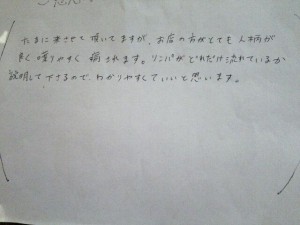 たまに来させて頂いてますが、お店の方がとても人柄が
良く喋りやすく 癒されます。リンパがどれだけ流れているか
説明して下さるので、わかりやすくていいと思います。